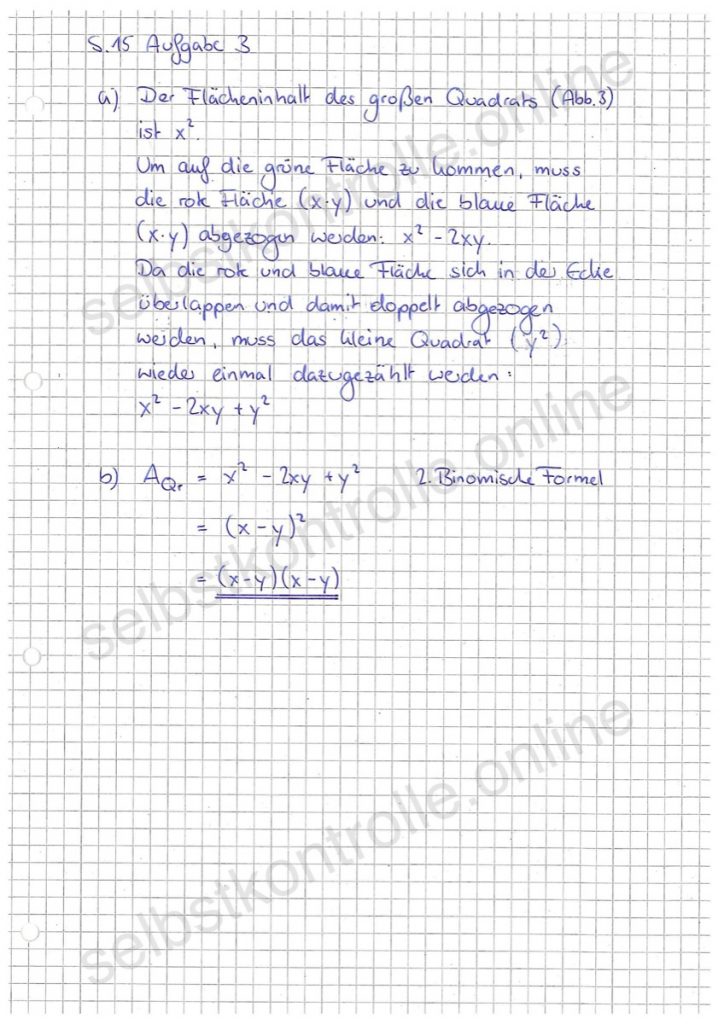 S.15 Aufgabe 3
a) Der Flächeninhalt des großen Quadrats (Abb.3)
ist x².
Um auf die grüne Fläche zu kommen, muss
die rote Fläche (x·y) und die blaue Fläche
(x·y) abgezogen werden: x² - 2xy.
Da die rote und blaue Fläche sich in der Ecke
überlappen und damit doppelt abgezogen
werden, muss das kleine Quadrat (y²)
wieder einmal dazugezählt werden:
x² - 2xy + y²
b) A_Gr = x² - 2xy + y² 2. Binomische Formel
= (x - y)²
= (x - y)(x - y)
selbstkontrolle.online
selbstkontrolle.online
selbstkontrolle.online